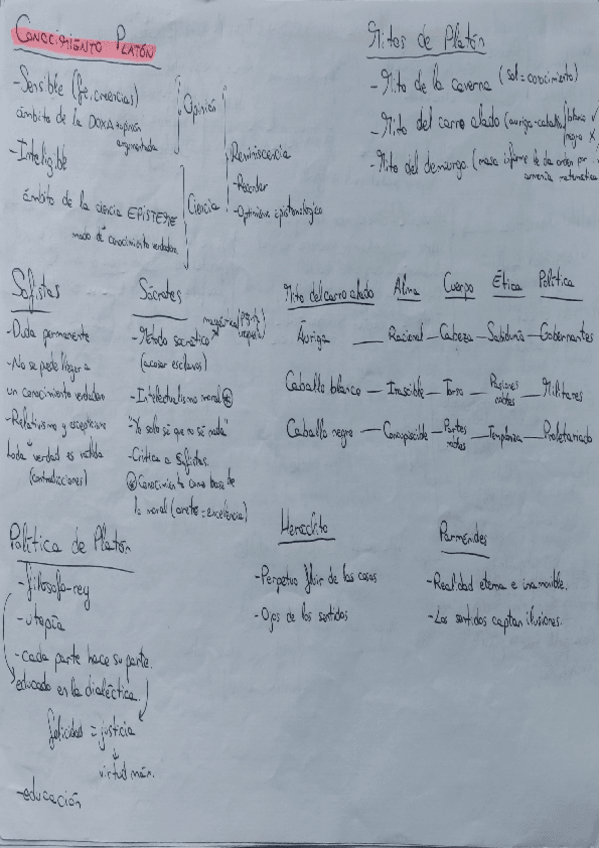 CONOCIMIENTO PLATÓN
-Sensible (fe, creencias)
ámbito de la DOXA=opinión
argumentada
-Inteligible
ámbito de la ciencia EPISTEME
modo de conocimiento verdadero
Opinión
Ciencia
Reminiscencia
-Recordar
-Optimismo epistemológico
Mitos de Platón
-Mito de la caverna (sol=conocimiento)
-Mito del carro alado (auriga-caballo blanco ✓
negro X
-Mito del demiurgo (masa informe le da orden por
armonía matemática
Sofistas
-Duda permanente
-No se puede llegar a
un conocimiento verdadero
-Relativismo y escepticismo
toda verdad es válida
(contradicciones)
Sócrates
-Método socrático
mayéutica
(acosar esclavos)
-Intelectualismo moral
-"Yo solo sé que no sé nada"
-Crítica a Sofistas.
Conocimiento como base de
la moral (areté=excelencia)
Mito del carro alado Alma Cuerpo Ética Política
Áuriga — Racional — Cabeza — Sabiduría — Gobernantes
Caballo blanco — Irascible — Torso — Pasiones nobles — Militares
Caballo negro — Concupiscible — Partes — Templanza — Proletariado
Política de Platón
-filósofo-rey
-utopía
-cada parte hace su parte.
educado en la dialéctica.
felicidad = justicia
virtud máx.
-educación
Heraclito
-Perpetuo fluir de las cosas
-Ojos de los sentidos
Parménides
-Realidad eterna e inamovible.
-Los sentidos captan ilusiones.